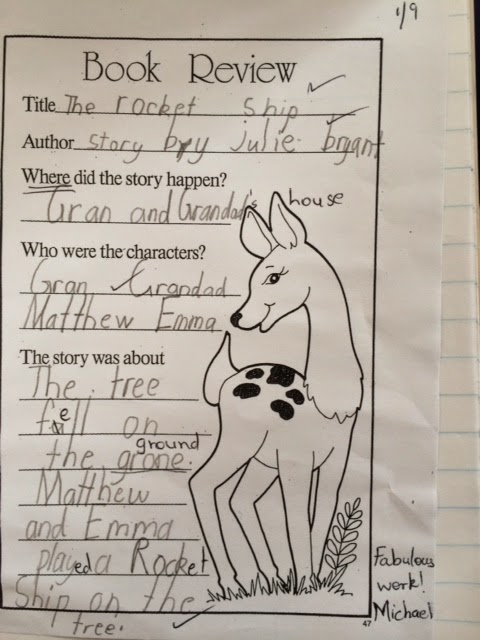 1/9
Book Review
Title The rocket ship
Author story by julie bryant
Where did the story happen?
Gran and Grandad's house
Who were the characters?
Gran Grandad
Matthew Emma
The story was about
The tree
fell on
ground
the grone.
Matthew
and Emma
played a Rocket
Ship on the
tree.
Fabulous
work!
Michael
47